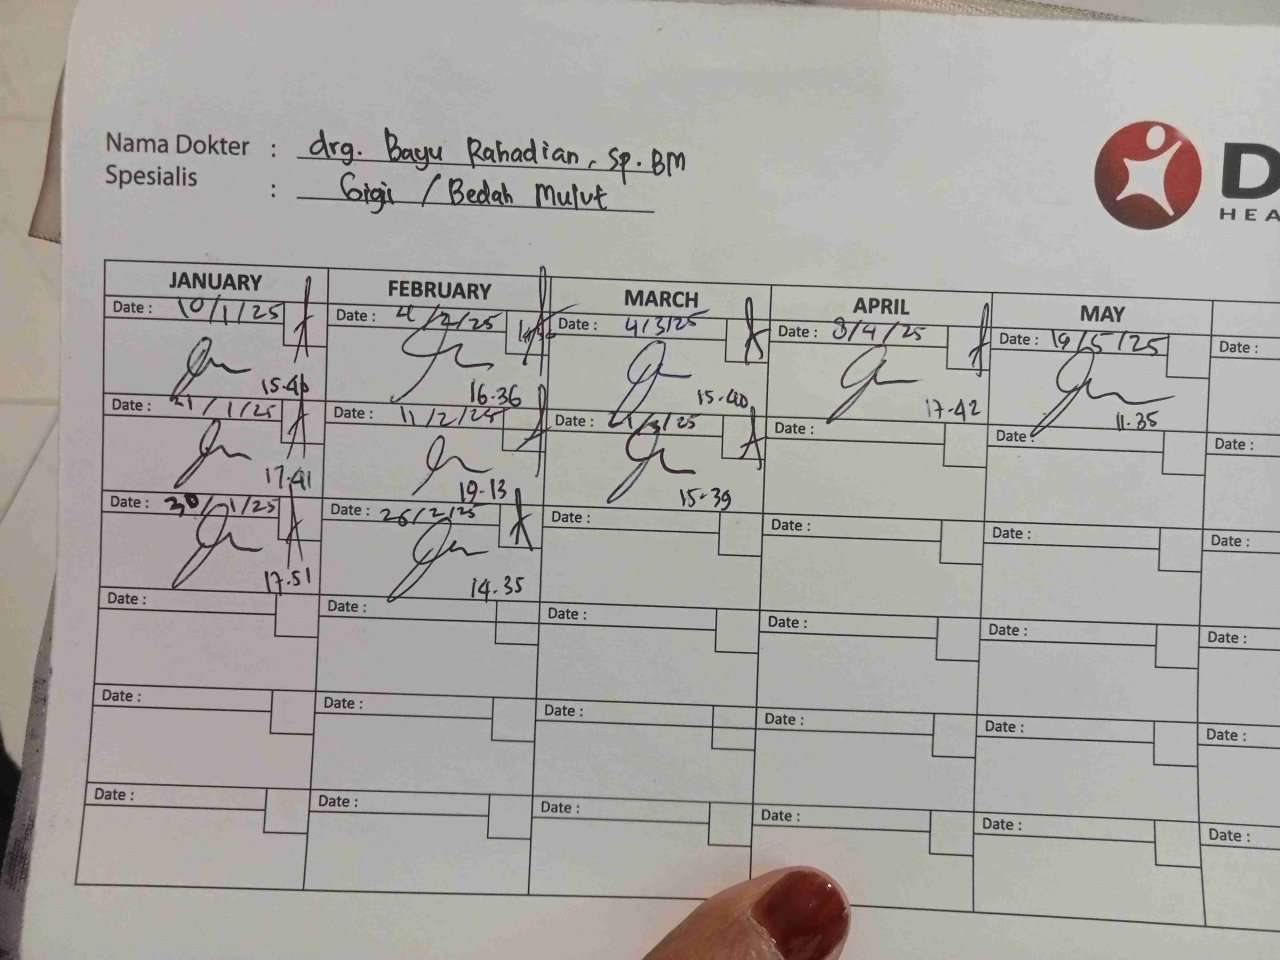 Nama Dokter : drg. Bayu Rahadian, Sp. BM
Spesialis : Gigi / Bedah Mulut
D
HEA
JANUARY FEBRUARY MARCH APRIL MAY
Date : 10/1/25 Date : 4/2/25 Date : 4/3/25 Date : 8/4/25 Date : 19/5/25 Date :
15.46 16.36 15.40 17.42 11.35
Date : 21/1/25 Date : 11/2/25 Date : 21/3/25 Date : Date : Date :
17.41 19.13 15.39
Date : 30/1/25 Date : 26/2/25 Date : Date : Date : Date :
17.51 14.35
Date : Date : Date : Date : Date : Date :
Date : Date : Date : Date : Date : Date :
Date : Date : Date : Date : Date : Date :